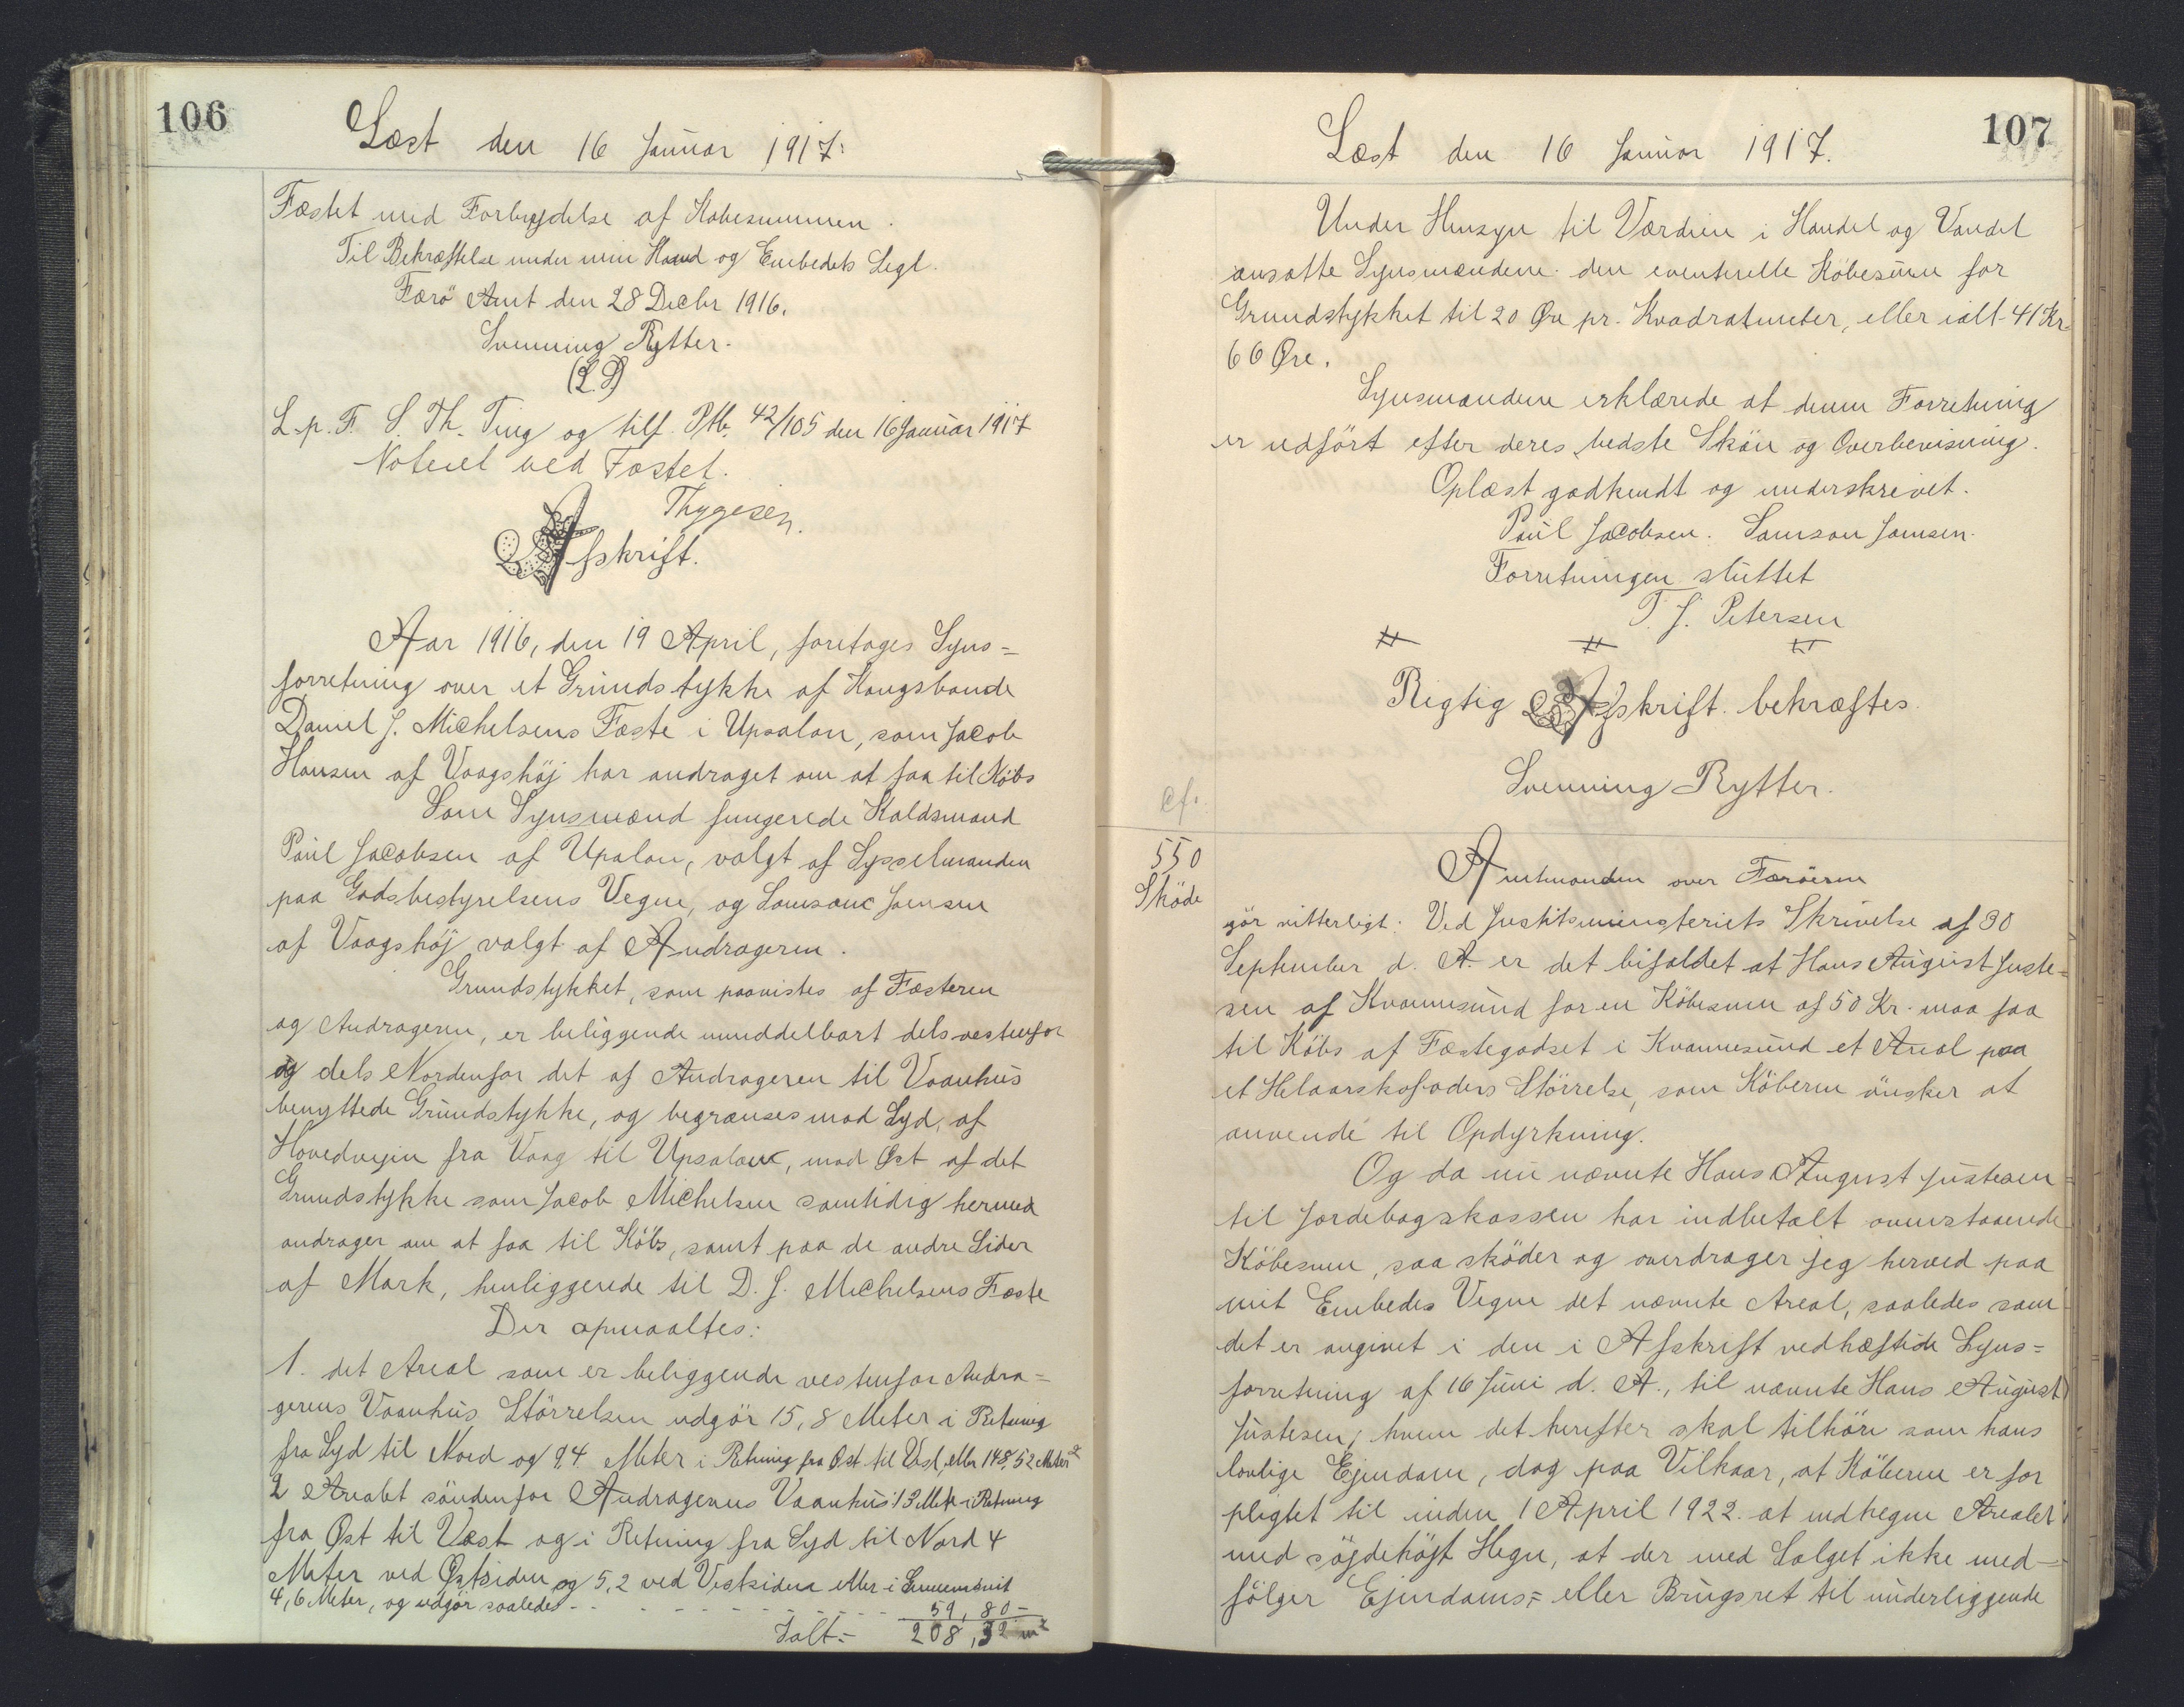 106
Læst den 16 Januar 1917.
Fæstet med Forbeydelse af Kobesummen.
Til Bekræftelse under min Haand og Embedets Segl.
Færö Amt den 28 Decbr 1916.
Svenning Rytter.
(L.S)
L. p. F. S. Th. Ting og tilf. Ptb. 42/105 den 16 Januar 1917
Noteret ved Fæstet.
Thygesen.
Afskrift.
Aar 1916, den 19 April, foretages Syns=
forretning over et Grundstykke af Kongsbonde
Daniel J. Michelsens Fæste i Upsalon, som Jacob
Hansen af Vaagshöj har andraget om at faa til Købs
Som Synsmænd fungerede Kaldsmand
Poul Jacobsen af Upalon, valgt af Sysselmanden
paa Godsbestyrelsens Vegne, og Samson Joensen
af Vaagshöj valgt af Andrageren.
Grundstykket, som paavistes af Fæsteren
og Andrageren, er beliggende umiddelbart dels vestenfor
og dels Nordenfor det af Andrageren til Vaanhus
benyttede Grundstykke, og begrænses mod Syd, af
Hovedvejen fra Vaag til Upsalon, mod Øst af det
Grundstykke som Jacob Michelsen samtidig hermed
andrager om at faa til Köbs, samt paa de andre Sider
af Mark, henliggende til D. J. Michelsens Fæste
Der opmaaltes:
1. det Areal som er beliggende vestenfor Andra=
gerens Vaanhus Störrelsen udgör 15,8 Meter i Retning
fra Syd til Nord og 9,4 Meter i Retning fra Øst til Vest, eller 148,52 Meter²
2 Arealet söndenfor Andragerens Vaanhus: 13 Meter i Retning
fra Øst til Væst og i Retning fra Syd til Nord 4
Meter ved Østsiden og 5,2 ved Vestsiden eller i Gennemsnit
4,6 Meter, og udgör saaledes - - - - - - - - - 59,80 -
Ialt = 208,32 m²
107
Læst den 16 Januar 1917.
Under Hensyn til Værdien i Handel og Vandel
ansatte Synsmændene den eventuelle Köbesum for
Grundstykket til 20 Øre pr. Kvadratmeter, eller ialt 41 Kr.
66 Øre.
Synsmændene erklærede at denne Forretning
er udfört efter deres bedste Skön og Overbevisning.
Oplæst godkendt og underskrevet.
Poul Jacobsen. Samson Joensen.
Forretningen sluttet
T. J. Petersen
Rigtig Afskrift bekræftes.
Svenning Rytter.
cfr.
550
Sköde
Amtmanden over Færöerne
gör vitterligt: Ved Justitsministeriets Skrivelse af 30
September d. A. er det bifaldet at Hans August Juste=
sen af Kvannesund for en Köbesum af 50 Kr. maa faa
til Köbs af Fæstegodset i Kvannesund et Areal paa
et Helaarskofoders Störrelse, som Köberen önsker at
anvende til Opdyrkning.
Og da nu nævnte Hans August Justesen
til Jordebogskassen har indbetalt ovenstaaende
Köbesum, saa sköder og overdrager jeg herved paa
mit Embedes Vegne det nævnte Areal, saaledes som
det er angivet i den i Afskrift vedhæftede Syns=
forretning af 16 Juni d. A., til nævnte Hans August
Justesen, hvem det herefter skal tilhöre som hans
lovlige Ejendom, dog paa Vilkaar, at Köberen er for
pligtet til inden 1 April 1922. at indhegne Arealet
med söjdehöjt Hegn, at der med Salget ikke med=
fölger Ejendoms= eller Brugsret til underliggende